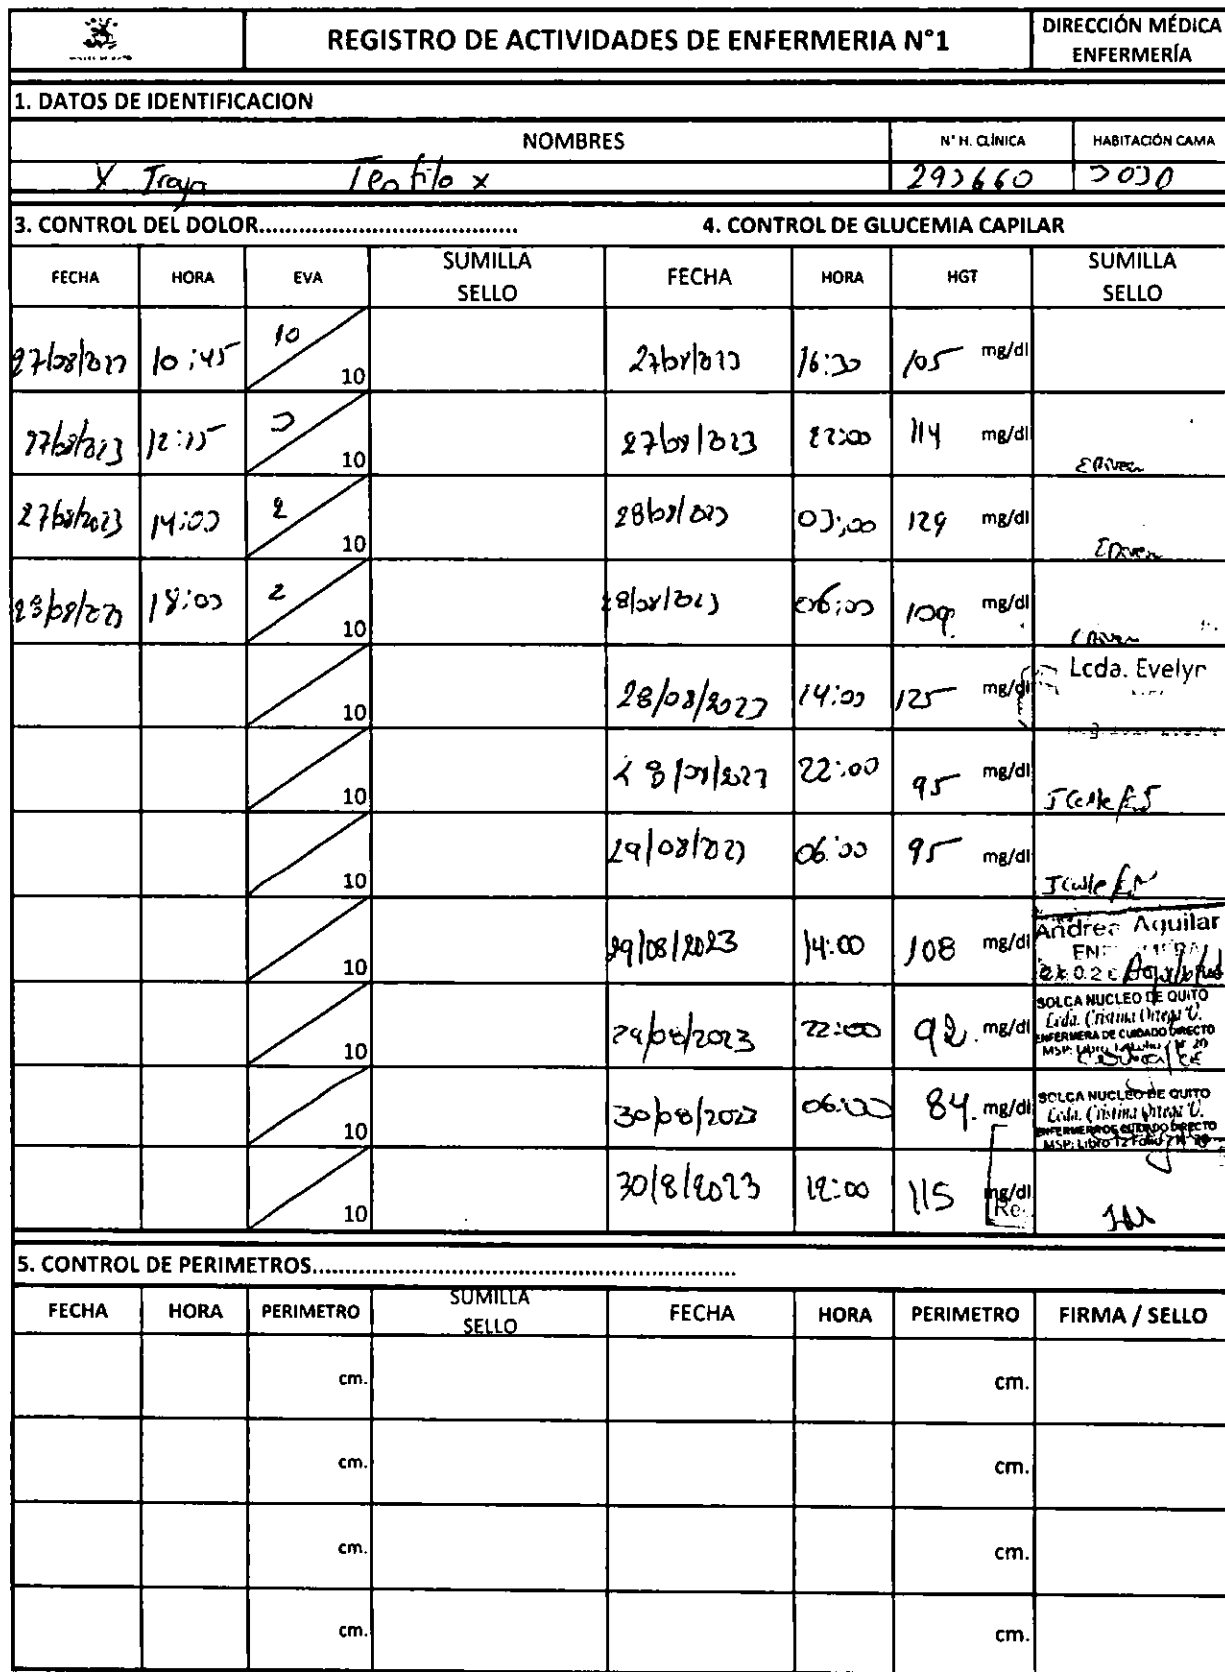 REGISTRO DE ACTIVIDADES DE ENFERMERIA N°1
DIRECCIÓN MÉDICA
ENFERMERÍA
1. DATOS DE IDENTIFICACION
NOMBRES N° H. CLÍNICA HABITACIÓN CAMA
X Troya Teofilo x 293660 3030
3. CONTROL DEL DOLOR....................................... 4. CONTROL DE GLUCEMIA CAPILAR
FECHA HORA EVA SUMILLA SELLO FECHA HORA HGT SUMILLA SELLO
27/08/2023 10:45 10 10 27/08/2023 16:30 105 mg/dl
27/08/2023 12:15 3 10 27/08/2023 22:00 114 mg/dl
27/08/2023 14:00 2 10 28/08/2023 03:00 129 mg/dl
23/08/2023 18:00 2 10 28/08/2023 06:00 109 mg/dl
10 28/08/2023 14:00 125 mg/dl Lcda. Evelyn
10 28/08/2023 22:00 95 mg/dl JCalle
10 29/08/2023 06:00 95 mg/dl JCalle
10 29/08/2023 14:00 108 mg/dl Andrea Aguilar
10 29/08/2023 22:00 92. mg/dl SOLCA NUCLEO DE QUITO
Lcda. Cristina Ortega U.
ENFERMERA DE CUIDADO DIRECTO
10 30/08/2023 06:00 84. mg/dl SOLCA NUCLEO DE QUITO
Lcda. Cristina Ortega U.
MSP: Libro 12 Folio
10 30/8/2023 12:00 115 mg/dl
Re
5. CONTROL DE PERIMETROS................................................................
FECHA HORA PERIMETRO SUMILLA SELLO FECHA HORA PERIMETRO FIRMA / SELLO
cm. cm.
cm. cm.
cm. cm.
cm. cm.